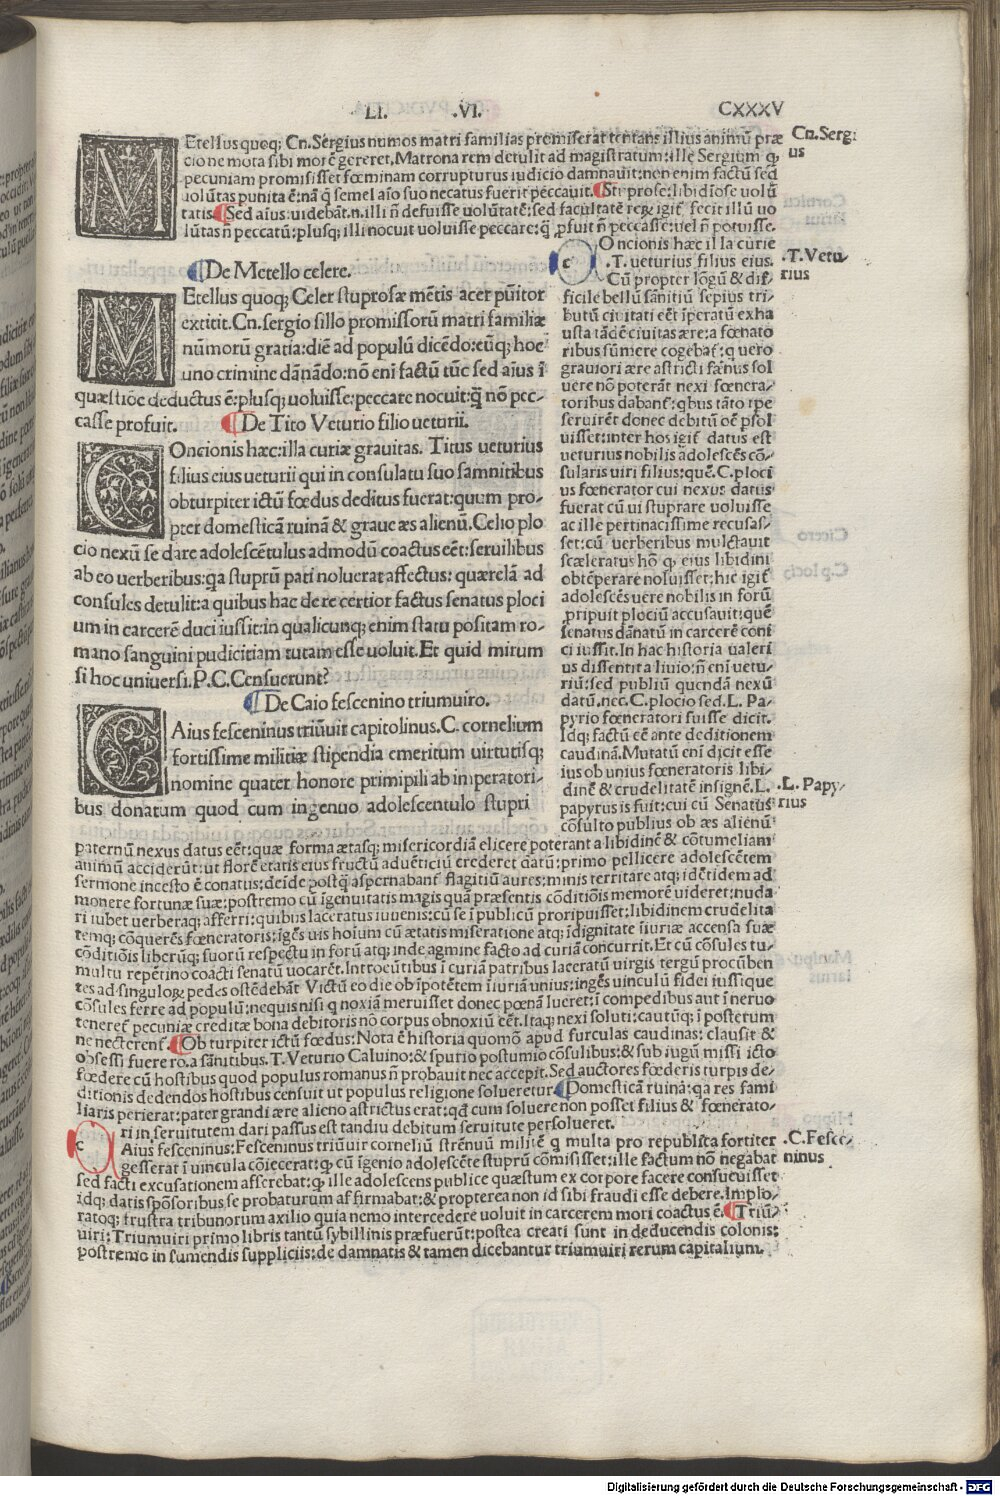 LI. .VI. CXXXV
MEtellus quoq; Cn. Sergius numos matri familias promiserat tentans illius animū præ
cio ne mota sibi morē gereret, Matrona rem detulit ad magistratum: ille Sergium ꝙ
pecuniam promisisset fœminam corrupturus iudicio damnauit: non enim factū sed
uolūtas punita ē: nā ꝗ semel aīo suo necatus fuerit peccauit. ¶Stuprosę: libidiose uolū
tatis ¶Sed aīus: uidebāt. n. illi ñ defuisse uolūtatē: sed facultatē reꝝ igit̄ fecit illū uo
lūtas ñ peccatū: plusq; illi nocuit uoluisse peccare: ꝙ ꝓfuit ñ peccasse: uel ñ potuisse.
Cn. Sergi
us
¶De Metello celere.
MEtellus quoq; Celer stuprosæ mētis acer pūitor
extitit. Cn. sergio sillo promissorū matri familiæ
nūmorū gratia: diē ad populū dicēdo: eūq; hoc
uno crimine dānādo: nō enī factū tūc sed aīus ī
quæstiōe deductus ē: plusq; uoluisse: peccare nocuit: q̄ nō pec-
casse profuit. ¶De Tito Veturio filio ueturii.
COncionis hæc: illa curiæ grauitas. Titus ueturius
filius eius ueturii qui in consulatu suo samnitibus
ob turpiter ictū fœdus deditus fuerat: quum pro-
pter domesticā ruinā & graue æs alienū. C. elio plo
cio nexū se dare adolescētulus admodū coactus eēt: seruilibus
ab eo uerberibus: qa stuprū pati noluerat affectus: quærelā ad
consules detulit: a quibus hac de re certior factus senatus ploci
um in carcerē duci iussit: in qualicunq; enim statu positam ro-
mano sanguini pudicitiam tutam esse uoluit. Et quid mirum
si hoc uniuersi. P. C. Censuerunt?
¶De Caio fescenino triumuiro.
CAius fesceninus triūuir capitolinus. C. cornelium
fortissime militiæ stipendia emeritum uirtutisq;
nomine quater honore primipili ab imperatori-
bus donatum quod cum ingenuo adolescentulo stupri
c Oncionis hæc illa curię
.T. ueturius filius eius.
Cū propter lōgū & dif-
ficile bellū sānitiū sepius tri-
butū ciuitati eēt īperatū exha
usta tādē ciuitas ære: a fœnato
ribus sūmere cogebat̄: q uero
grauiori ære astricti fænus sol
uere nō poterāt nexi fœnera-
toribus dabant̄: qbus tāto tpe
seruirēt donec debitū oē psol
uisset: inter hos igit̄ datus est
ueturius nobilis adolescēs cō-
sularis uiri filius: quē. C. ploci
us fœnerator cui nexus datus
fuerat cū ui stuprare uoluisse
ac ille pertinacissime recusas-
set: cū uerberibus mulctauit
scæleratus hō ꝙ eius libidini
obtēperare noluisset: hic igit̄
adolescēs uere nobilis in forū
pripuit plociū accusauit: quē
senatus dānatū in carcerē coni
ci iussit. In hac historia ualeri
us dissentit a liuio: ñ enī uetu-
riū: sed publiū quendā nexū
datū. nec. C. plocio sed. L. Pa-
pyrio fœneratori fuisse dicit.
Idq; factū eē ante deditionem
caudinā. Mutatū enī dicit esse
ius ob unius fœneratoris libi-
dinē & crudelitatē insignē. L.
papyrius is fuit: cui cū Senatus
cōsulto publius ob æs alienū
.T. Vetu-
rius
.L. Papy-
rius
paternū nexus datus eēt: quæ forma ætasq; misericordiā elicere poterant a libidinē & cōtumeliam
animū acciderūt: ut florē etatis eius fructū aduēticiū crederet datū: primo pellicere adolescētem
sermone incesto ē conatus: deīde postq̄ aspernabant̄ flagitiū aures: minis territare atq; idētidem ad
monere fortunæ suæ: postremo cū īgenuitatis magis quā præsentis cōditiōis memorē uideret: nuda
ri iubet uerberaq; afferri: quibus laceratus iuuenis: cū se ī publicū proripuisset: libidinem crudelita
temq; cōquerēs fœneratoris: īgēs uis hoīum cū ætatis miseratione atq; īdignitate īiuriæ accensa suæ
cōditiōis liberūq; suorū respectu in forū atq; inde agmine facto ad curiā concurrit. Et cū cōsules tu-
multu repētino coacti senatū uocarēt. Introeūtibus ī curiā patribus laceratū uirgis tergū procūben
tes ad singuloꝝ pedes ostēdebāt Victū eo die ob īpotētem īiuriā unius: ingēs uinculū fidei iussique
cōsules ferre ad populū: nequis nisi q noxiā meruisset donec pœnā lueret: ī compedibus aut ī neruo
teneret̄ pecuniæ creditæ bona debitoris nō corpus obnoxiū eēt. Itaq; nexi soluti: cautūq; ī posterum
ne necterent̄. ¶Ob turpiter ictū fœdus: Nota ē historia quomō apud furculas caudinas: clausit &
obsessi fuere ro. a sānitibus. T. Veturio Caluino: & spurio postumio cōsulibus: & sub iugū missi icto
fœdere cū hostibus quod populus romanus ñ probauit nec accepit. Sed auctores fœderis turpis de-
ditionis dedendos hostibus censuit ut populus religione solueretur ¶Domesticā ruinā: qa res fami
liaris perierat: pater grandi ære alieno astrictus erat: qd cum soluere non posset filius & fœnerato-
ri in seruitutem dari passus est tandiu debitum seruitute persolueret.
c Aius fesceninus: Fesceninus triūuir corneliū strēnuū militē q multa pro republica fortiter
gesserat ī uincula cōiecerat: ꝙ cū īgenio adolescēte stuprū cōmisisset: ille factum nō negabat
sed facti excusationem afferebat: ꝙ ille adolescens publice quæstum ex corpore facere consueuisset
idq; datis spōsoribus se probaturum affirmabat: & propterea non id sibi fraudi esse debere. Implo-
ratoq; frustra tribunorum axilio quia nemo intercedere uoluit in carcerem mori coactus ē. ¶Triū-
uiri: Triumuiri primo libris tantū sybillinis præfuerūt: postea creati sunt in deducendis colonis:
postremo in sumendis suppliciis: de damnatis & tamen dicebantur triumuiri rerum capitalium.
.C. Fesce-
ninus
Digitalisierung gefördert durch die Deutsche Forschungsgemeinschaft - DFG